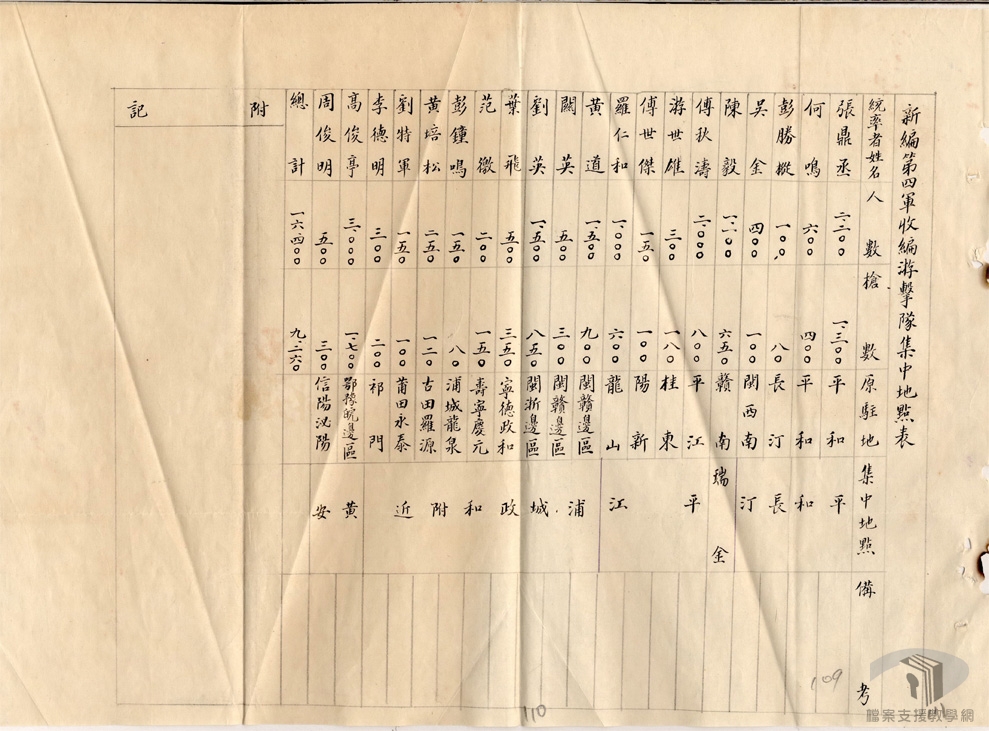 新編第四軍收編游擊隊集中地點表
統率者姓名 人數 槍數 原駐地 集中地點 備考
張鼎丞 二、二〇〇 一、三〇〇 平和 平
何鳴 六〇〇 四〇〇 平和 和
彭勝 一〇〇 八〇 長汀 長
吳金 四〇〇 一〇〇 閩西南 汀
陳毅 一、一〇〇 六五〇 贛南 瑞金
傅狄濤 二、〇〇〇 八〇〇 平江 平
游世雄 三〇〇 一八〇 桂東
傅世傑 一五〇 一〇〇 陽新
羅仁和 一、〇〇〇 六〇〇 龍山 江
黃道 一、五〇〇 九〇〇 閩贛邊區 浦
闕英 五〇〇 三〇〇 閩贛邊區
劉英 一、五〇〇 八五〇 閩浙邊區 城
葉飛 五〇〇 三五〇 寧德政和 政
范徵 二〇〇 一五〇 壽寧慶元 和
彭鐘鳴 一五〇 八〇 浦城龍泉
黃培松 二五〇 一二〇 古田羅源 附
劉特軍 一五〇 一〇〇 莆田永泰 近
李德明 三〇〇 二〇〇 祁門
高俊亭 三、〇〇〇 一、七〇〇 鄂豫皖邊區 黃
周俊明 五〇〇 三〇〇 信陽泌陽 安
總計 一六、四〇〇 九、二六〇
附記
109
110
檔案支援教學網